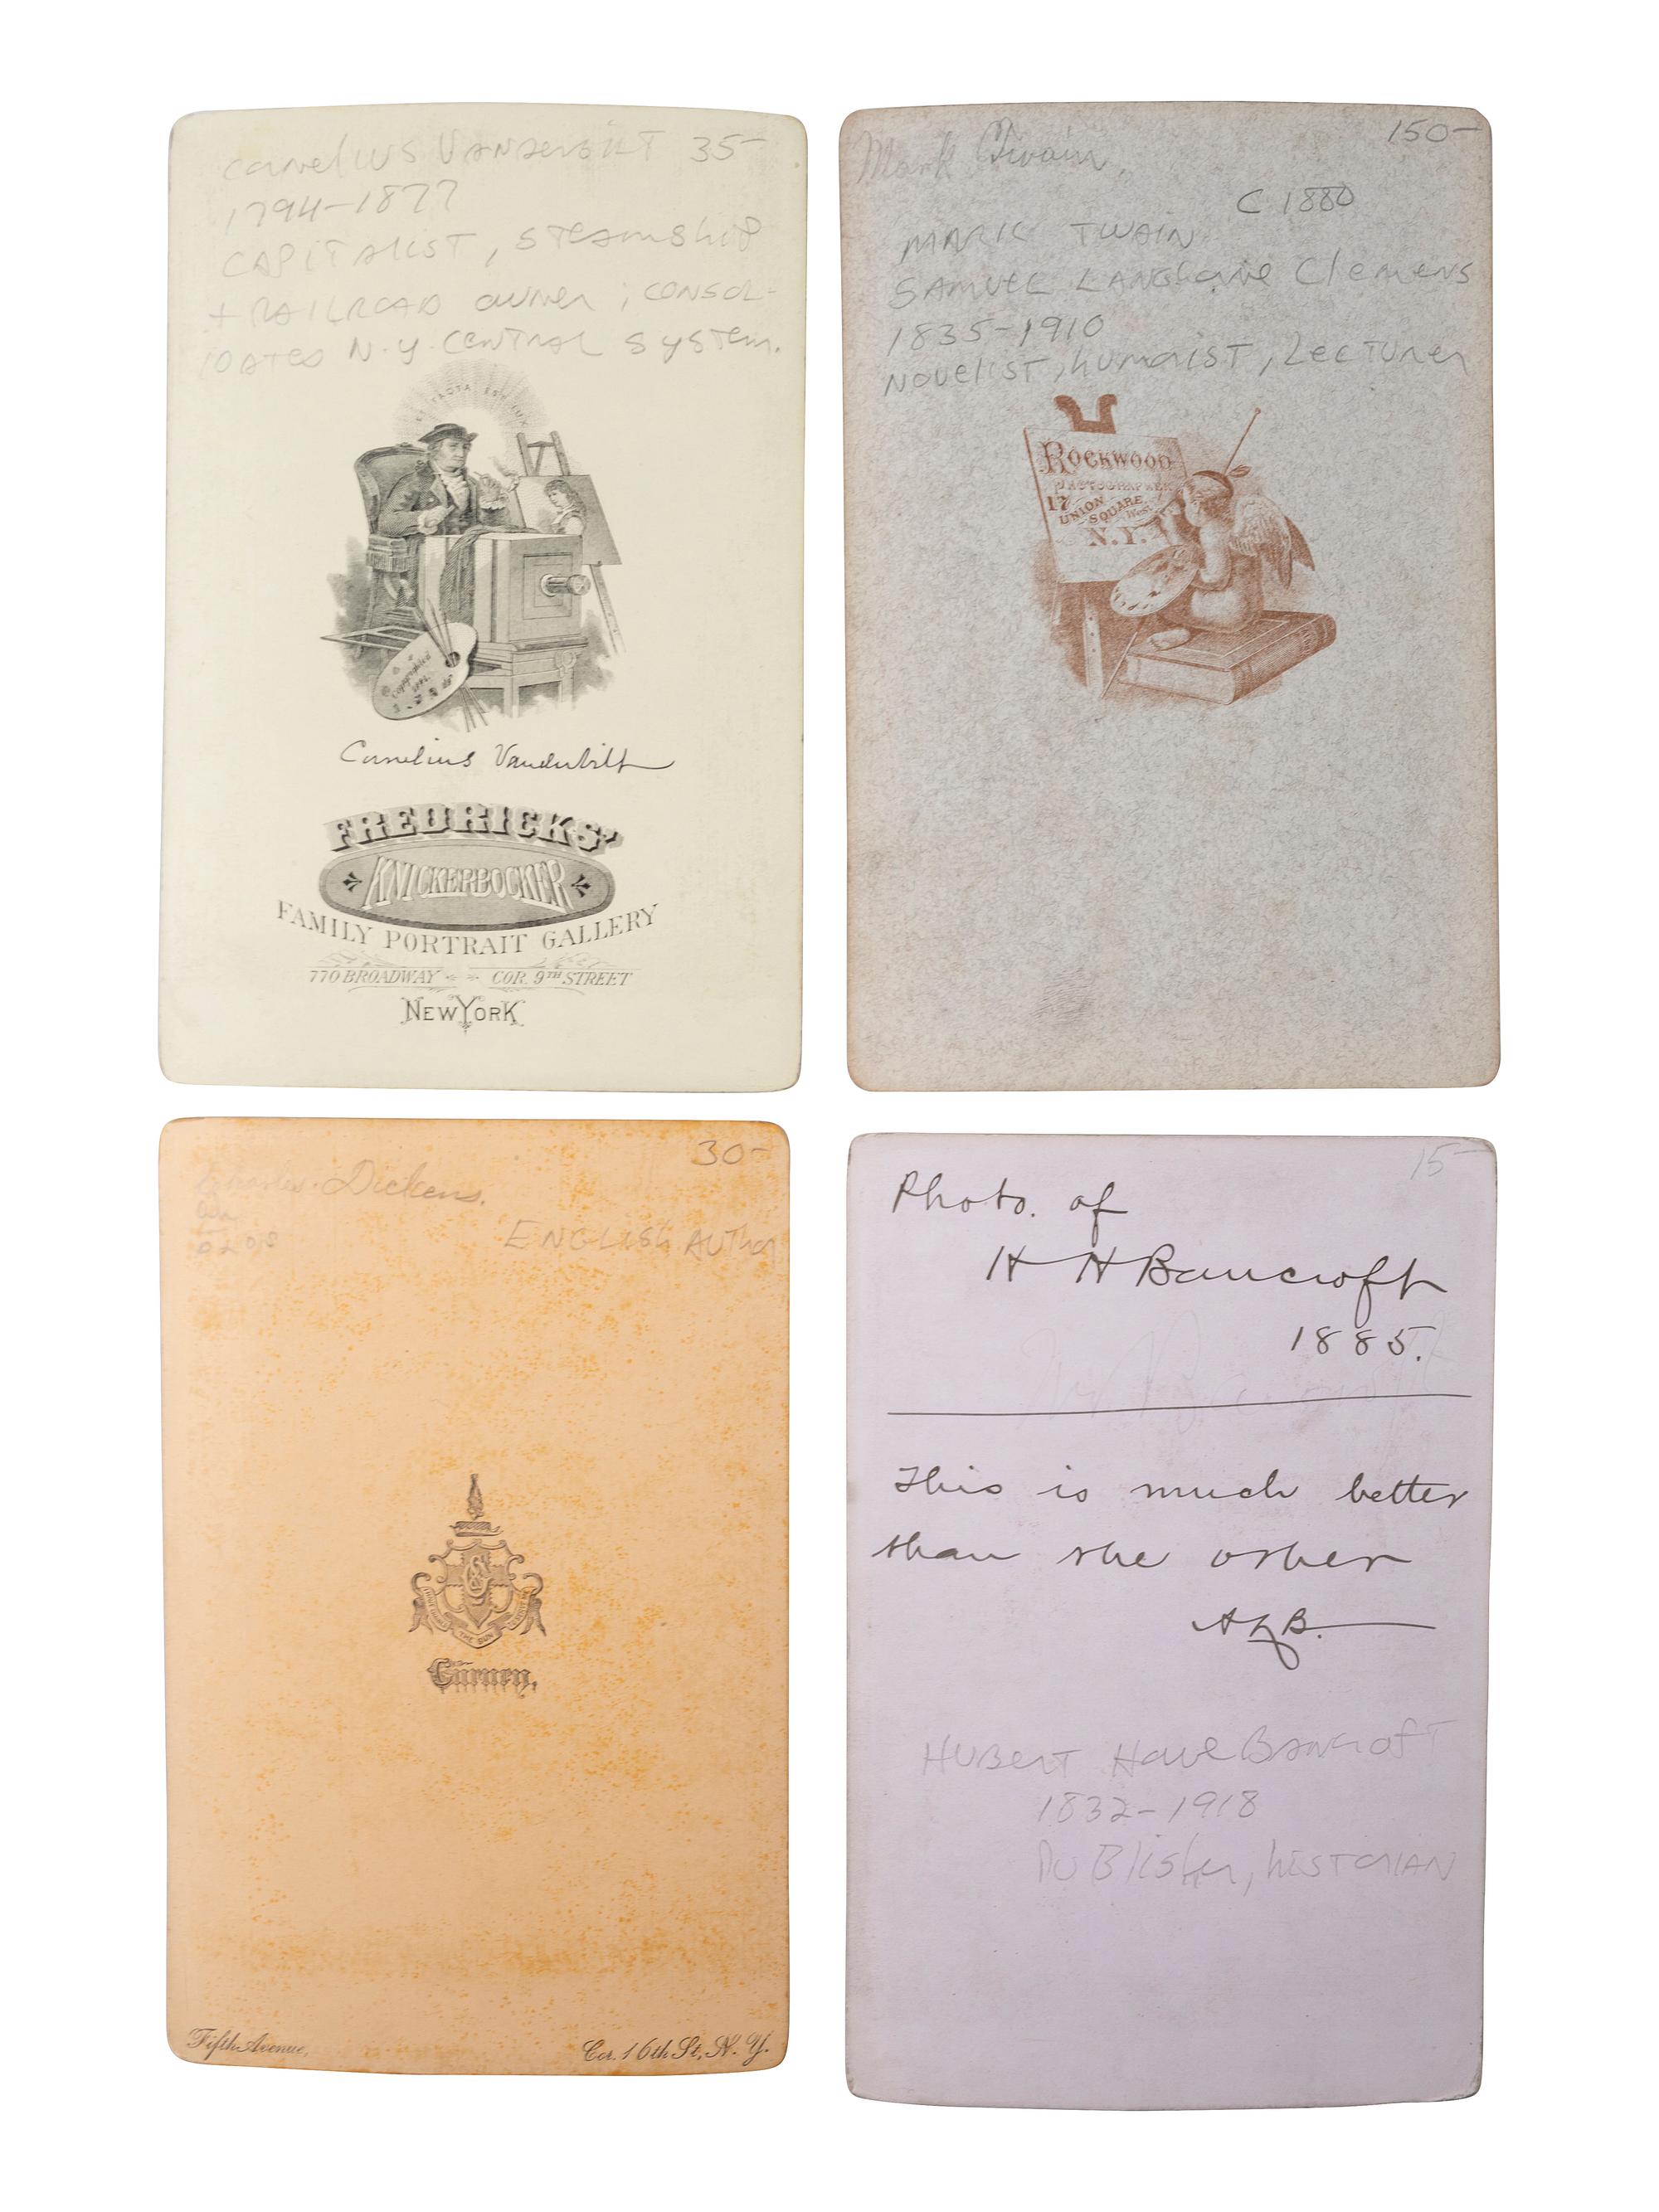 Cornelius Vanderbilt 35-
1794-1877
CAPITALIST, STEAMSHIP
+ RAILROAD owner; CONSOL-
IDATED N.Y. CENTRAL SYSTEM.
FACTA EST LUX
Copyrighted
Cornelius Vanderbilt
FREDRICKS'
KNICKERBOCKER
FAMILY PORTRAIT GALLERY
770 BROADWAY COR. 9TH STREET
NEW YORK
Mark Twain 150-
C 1880
MARK TWAIN
SAMUEL LANGHORNE Clemens
1835-1910
NOVELIST, humorist, LECTURER
ROCKWOOD
PHOTOGRAPHER
17 UNION SQUARE West
N.Y.
30-
Charles Dickens.
ENGLISH AUTHOR
THE SUN
Gurney.
Fifth Avenue, Cor. 16th St, N.Y.
15-
Photo. of
H H Bancroft
1885.
This is much better
than the other
HUBERT Howe BANCROFT
1832-1918
PUBlisher, hISTORIAN